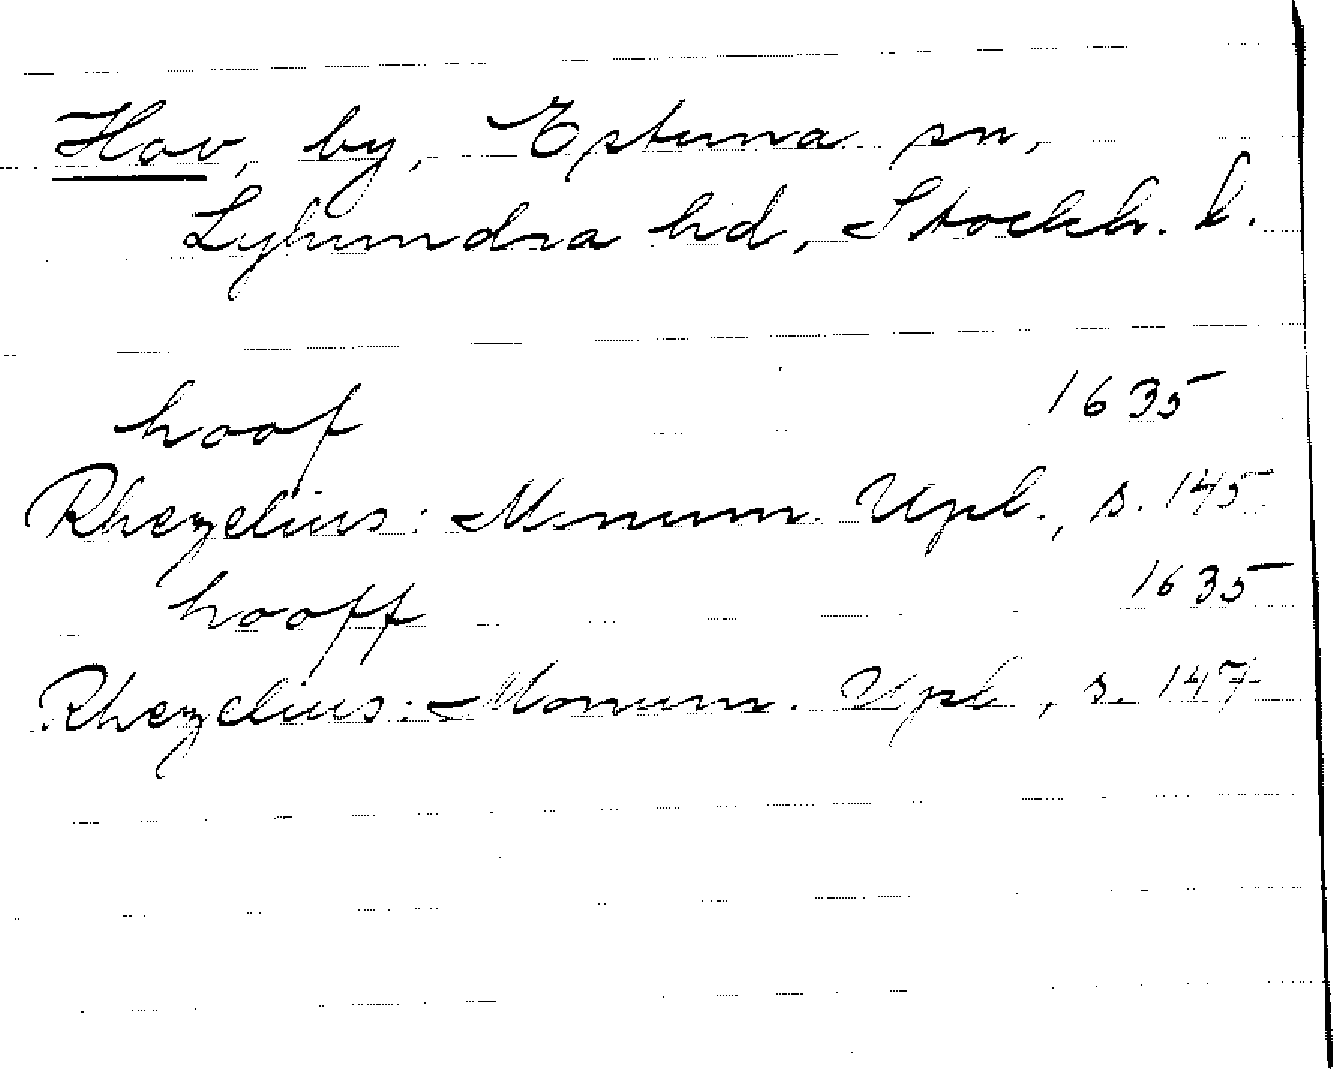 Hov, by, Estuna sn,
Lyhundra hd, Stockh. l.
hoof 1635
Rhezelius: Monum. Upl., s. 145
hooff 1635
Rhezelius: Monum. Upl, s. 147